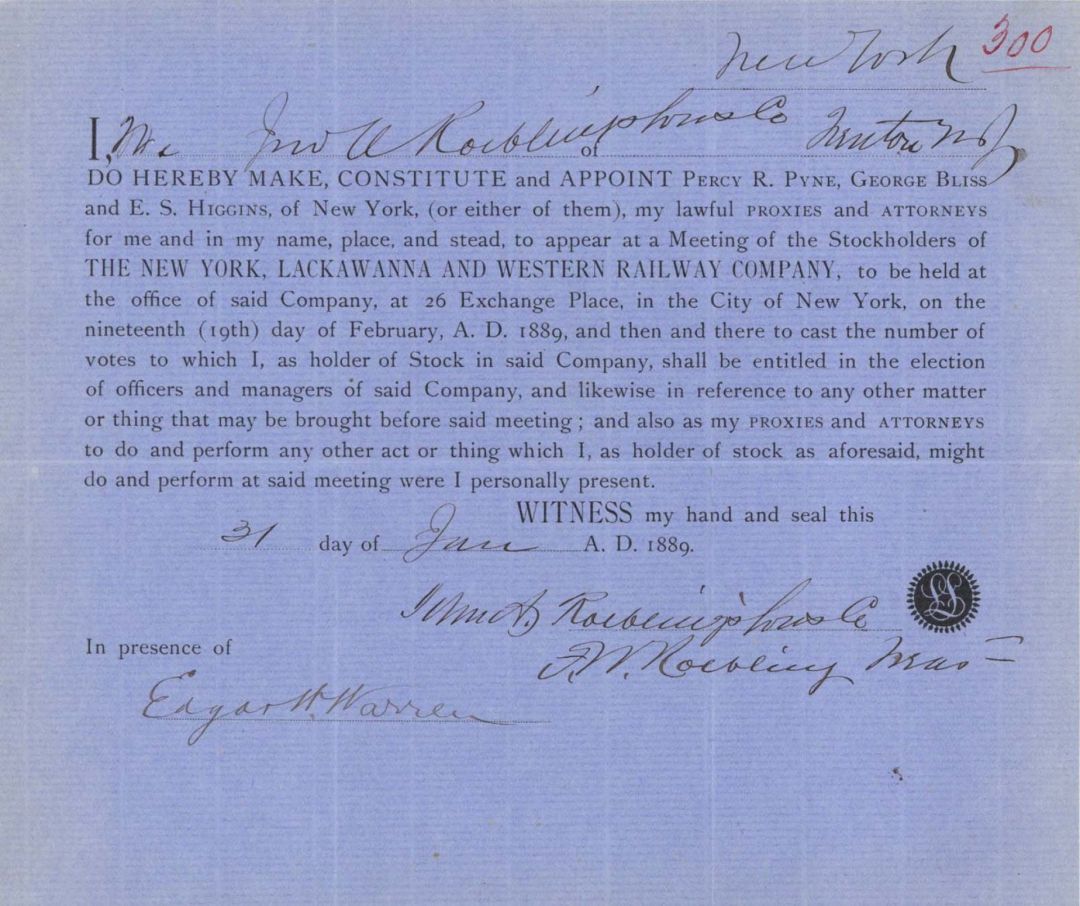 New York 300
I, We Jno A Roebling's Sons Co of Trenton NJ
DO HEREBY MAKE, CONSTITUTE and APPOINT PERCY R. PYNE, GEORGE BLISS
and E. S. HIGGINS, of New York, (or either of them), my lawful PROXIES and ATTORNEYS
for me and in my name, place, and stead, to appear at a Meeting of the Stockholders of
THE NEW YORK, LACKAWANNA AND WESTERN RAILWAY COMPANY, to be held at
the office of said Company, at 26 Exchange Place, in the City of New York, on the
nineteenth (19th) day of February, A. D. 1889, and then and there to cast the number of
votes to which I, as holder of Stock in said Company, shall be entitled in the election
of officers and managers of said Company, and likewise in reference to any other matter
or thing that may be brought before said meeting; and also as my PROXIES and ATTORNEYS
to do and perform any other act or thing which I, as holder of stock as aforesaid, might
do and perform at said meeting were I personally present.
WITNESS my hand and seal this
31 day of Jan A. D. 1889.
John A. Roebling's Sons Co
LS
In presence of
F. W. Roebling Treas
Edgar W. Warren